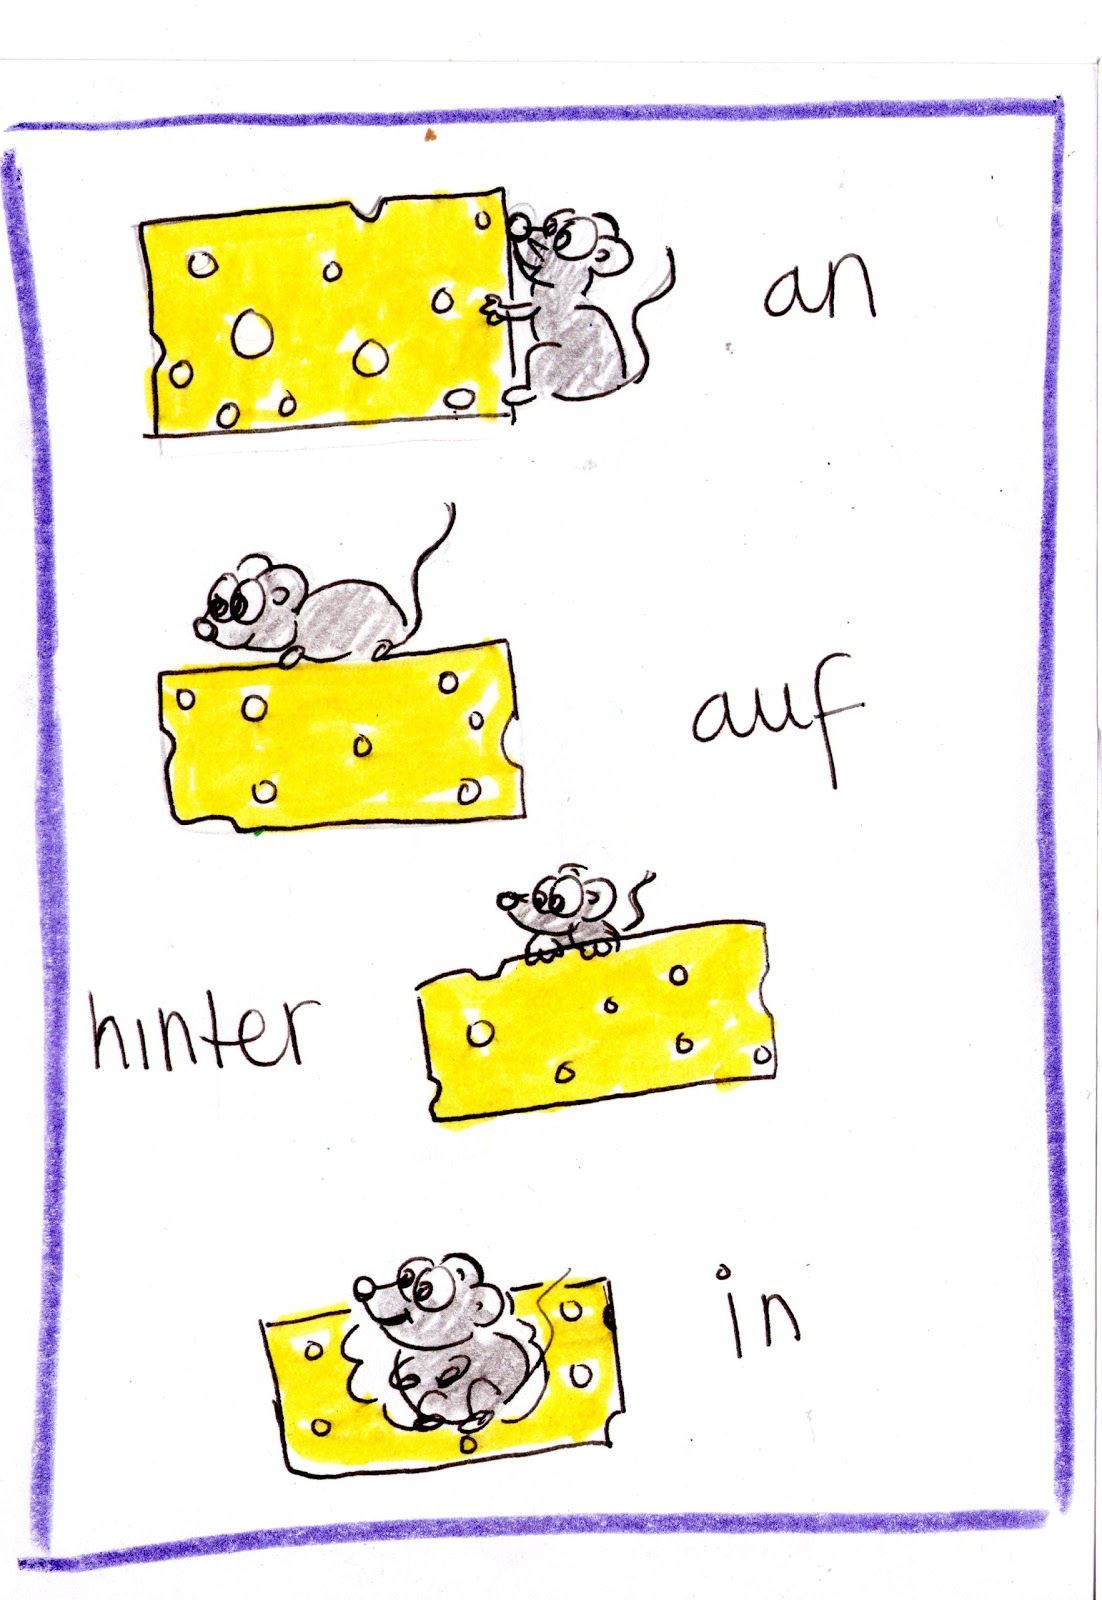 an
auf
hinter
in